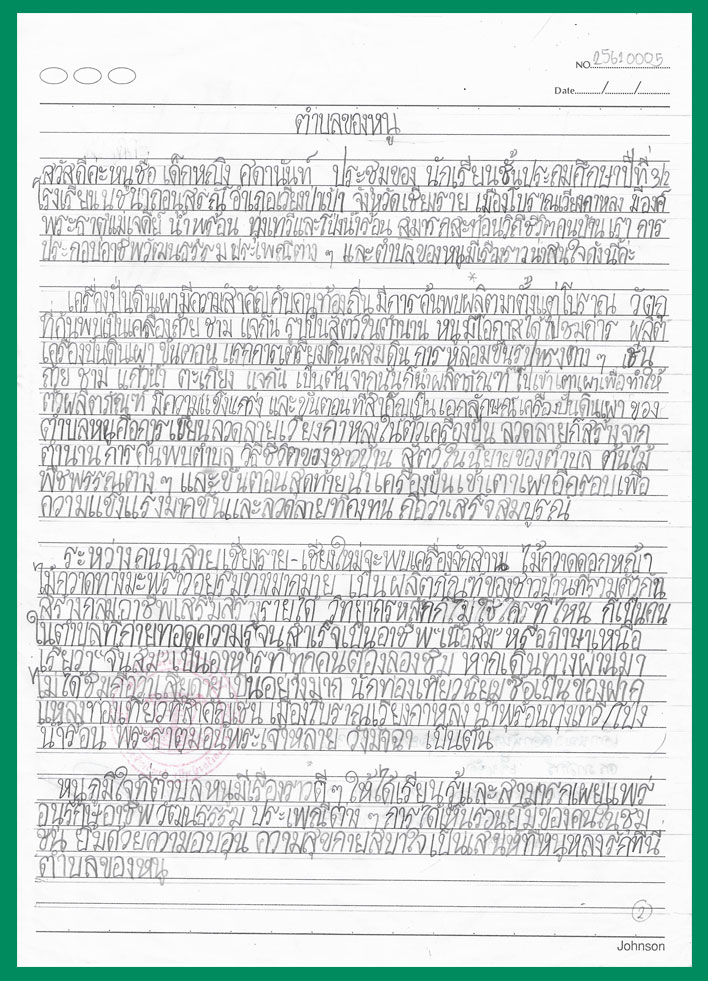 NO. 25610005
Date......../......../........
ตำบลของหนู
สวัสดีค่ะหนูชื่อ เด็กหญิง ศดานันท์ ประชุมของ นักเรียนชั้นประถมศึกษาปีที่ 5/2
โรงเรียน อำเภอเวียงป่าเป้า จังหวัดเชียงราย เมืองโบราณเวียงกาหลง มีองค์
พระธาตุแม่เจดีย์ น้ำพุร้อน ทุ่งเทวีและโป่งน้ำร้อน สามารถสะท้อนวิถีชีวิตคนบ้านเรา การ
ประกอบอาชีพวัฒนธรรม ประเพณีต่าง ๆ และตำบลของหนูมีเรื่องราวน่าสนใจดังนี้ค่ะ
เครื่องปั้นดินเผามีความสำคัญกับคนท้องถิ่น มีการค้นพบผลิตมาตั้งแต่โบราณ วัตถุ
ที่ค้นพบเป็นเครื่องถ้วย ชาม แจกัน รูปปั้นสัตว์ในตำนาน หนูมีโอกาสได้ไปชมการ ผลิต
เครื่องปั้นดินเผา ขั้นตอน แรกการเตรียมดินผสมดิน การหล่อมขึ้นรูปทรงต่าง ๆ เช่น
ถ้วย ชาม แก้วน้ำ ตะเกียง แจกัน เป็นต้น จากนั้นก็นำผลิตภัณฑ์ ไปเข้าเตาเผาเพื่อทำให้
ตัวผลิตภัณฑ์ มีความแข็งแกร่ง และขั้นตอนที่สำคัญเป็นเอกลักษณ์เครื่องปั้นดินเผา ของ
ตำบลหนูคือการเขียนลวดลายเวียงกาหลงในตัวเครื่องปั้น ลวดลายก็สร้างจาก
ตำนาน การค้นพบตำบล วิถีชีวิตของชาวบ้าน สัตว์ในนิยายของตำบล ต้นไม้
พืชพรรณต่าง ๆ และขั้นตอนสุดท้ายนำเครื่องปั้นเข้าเตาเผาอีกรอบเพื่อ
ความแข็งแรงมากขึ้นและลวดลายที่คงทน ถือว่าเสร็จสมบูรณ์
ระหว่างถนนสายเชียงราย-เชียงใหม่จะพบเครื่องจักสาน ไม้กวาดดอกหญ้า
ไม้กวาดทางมะพร้าวอยู่ริมทางมากมาย เป็นผลิตภัณฑ์ของชาวบ้านที่รวมตัวกัน
สร้างกลุ่มอาชีพเสริมสร้างรายได้ วิทยากรหลักก็ไม่ใช่ใครที่ไหน ก็เป็นคน
ในตำบลที่ถ่ายทอดความรู้จนสำเร็จเป็นอาชีพ "เนื้อส้ม" หรือภาษาเหนือ
เรียกว่า "จิ้นส้ม" เป็นอาหารที่ทุกคนต้องลองชิม หากเดินทางผ่านมา
ไม่ได้ชิมถือว่า เสียดายเป็นอย่างมาก นักท่องเที่ยวนิยมซื้อเป็นของฝาก
แหล่งท่องเที่ยวที่สำคัญเช่น เมืองโบราณเวียงกาหลง น้ำพุร้อนทุ่งเทวี/โป่ง
น้ำร้อน พระธาตุม่อนพระเจ้าหลาย วังมัจฉา เป็นต้น
หนูภูมิใจที่ตำบลหนูมีเรื่องราวดี ๆ ให้ได้เรียนรู้และสามารถเผยแพร่
อนุรักษ์อาชีพ วัฒนธรรม ประเพณีต่าง ๆ การได้เห็นรอยยิ้มของคนในชุม
ชน ยิ้มด้วยความอบอุ่น ความสุขกายสบายใจ เป็นเสน่ห์ที่หนูหลงรักที่นี่
ตำบลของหนู
2
Johnson